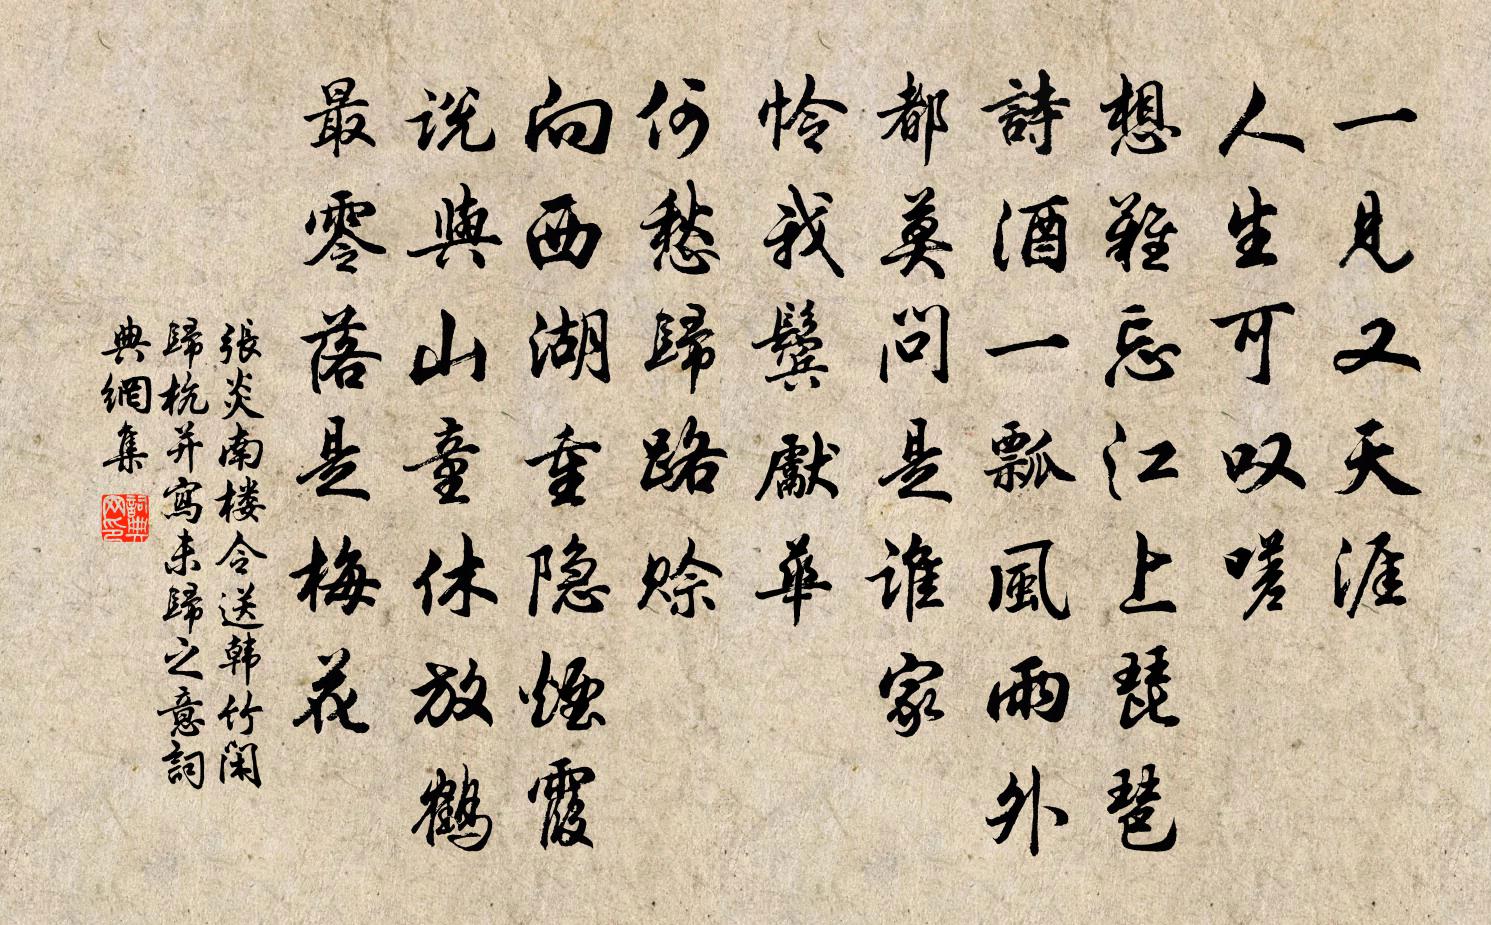 一見又天涯
人生可叹嗟
想難忘江上琵琶
詩酒一瓢風雨外
都莫問是誰家
怜我鬓獻華
何愁歸路赊
向西湖重隐煙霞
说與山童休放鶴
最零落是梅花
張炎南楼令送韩竹閑
歸杭并寫未歸之意詞
典網集
詞典网印